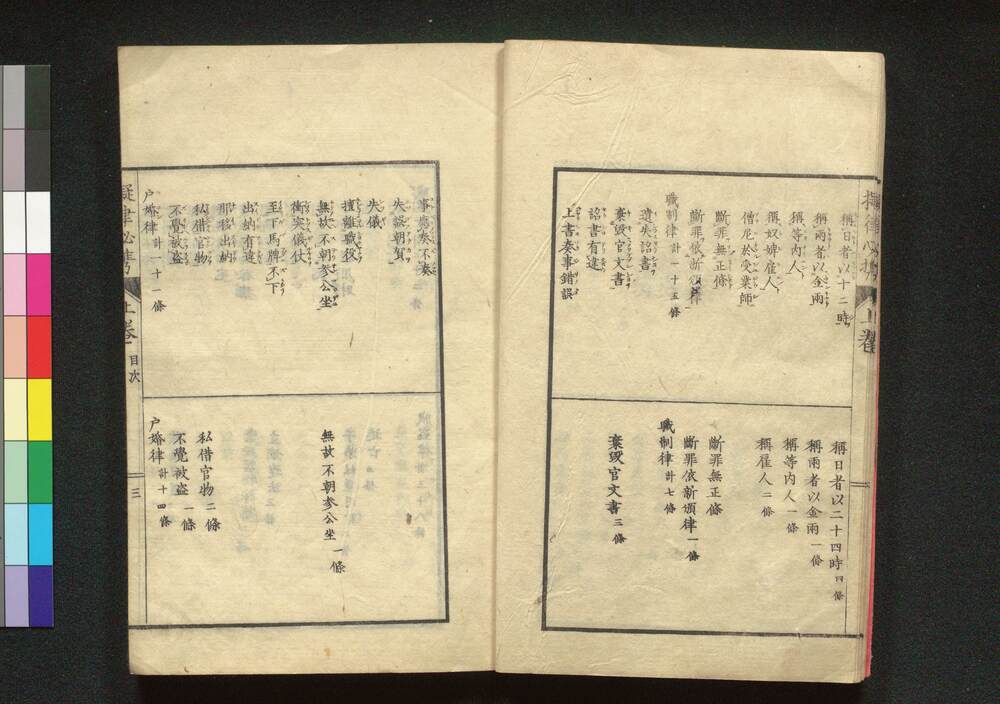 擬律必携 上卷
稱日者以十二時
稱兩者以金兩
稱等內人
稱奴婢雇人
僧尼於受業師
斷罪無正條
斷罪依新頒律
職制律計一十五條
遺失詔書
棄毀官文書
詔書有違
上書奏事錯誤
稱日者以二十四時 四條
稱兩者以金兩 一條
稱等內人 一條
稱雇人 二條
斷罪無正條
斷罪依新頒律 一條
職制律 計七條
棄毀官文書 三條
事應奏不奏
失誤朝賀
失儀
擅離職役
無故不朝參公坐
衝突儀仗
至下馬牌不下
出納有違
那移出納
私借官物
不覺被盗
户婚律 計一十一條
無故不朝參公坐 一條
私借官物 二條
不覺被盗 一條
户婚律 計十四條
擬律必携 上卷 目次 三